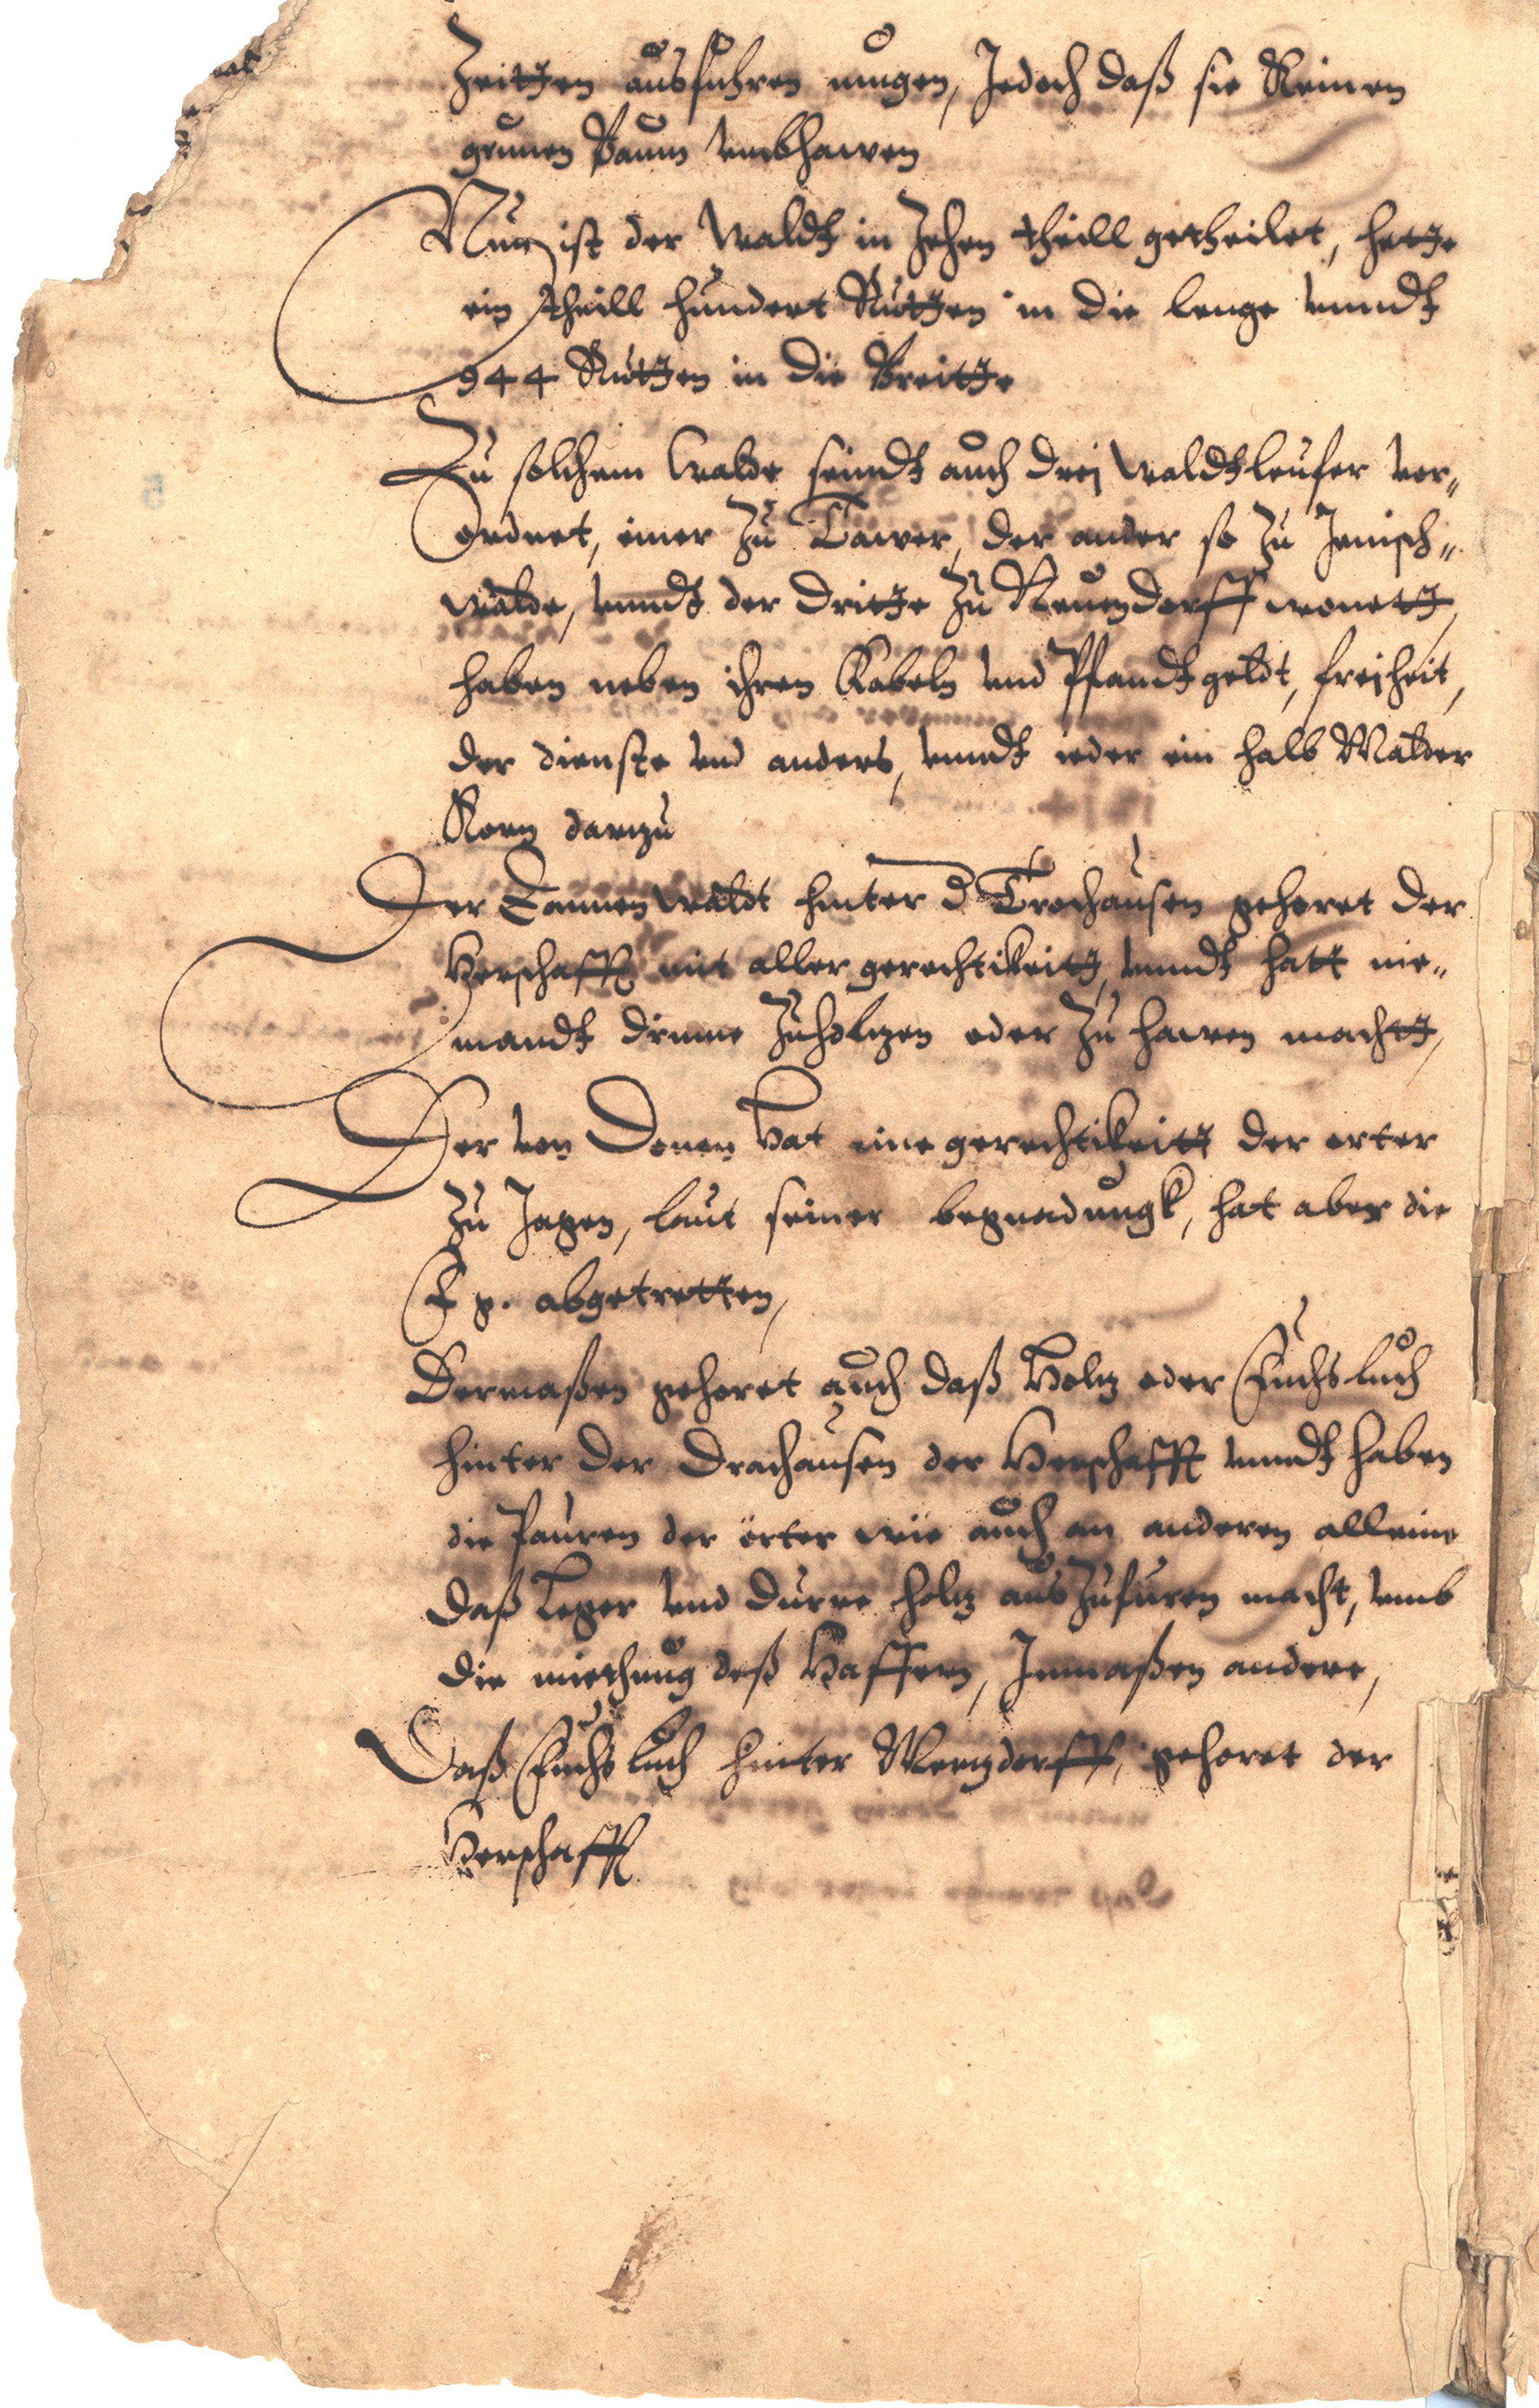 Zeitten ausfuhren mugen, Jedoch daß sie Keinen
grunen Baum umbhawen
Nun ist der Waldt in Zehen theill getheilet, hette
ein theill hundert Rutten in die lenge unndt
944 Rutten in die Breitte
Zu solchem Walde seindt auch drei Waldtleufer ver„
ordnet, einer Zu Tawer, der ander so Zu Jenisch„
walde, unndt der dritte Zu Neuendorff wonett,
haben neben ihren Kabeln und Pfandtgeldt, freiheit,
der dienste und anders, unndt ieder ein halb Malder
Korn darzu
Der Tannenwaldt hinter d Trachausen gehoret der
Herschafft mit aller gerechtikeitt, unndt hatt nie„
mandt drinne Zuholtzen oder Zu hawen machtt,
Der von Donen hat eine gerechtikeitt der orter
Zu Jagen, laut seiner begnadungk, hat aber die
abgetretten,
Dermaßen gehoret auch daß Holtz oder Fuchsluch
hinter der Drachausen der Herschafft unndt haben
die Pauren der örter wie auch an anderen alleine
daß Leger und durre holtz aus Zufuren macht, umb
die miethung deß Haffern, Inmaßen andere,
Daß Fuchs luch hinter Mertzdorff, gehoret der
Herschafft